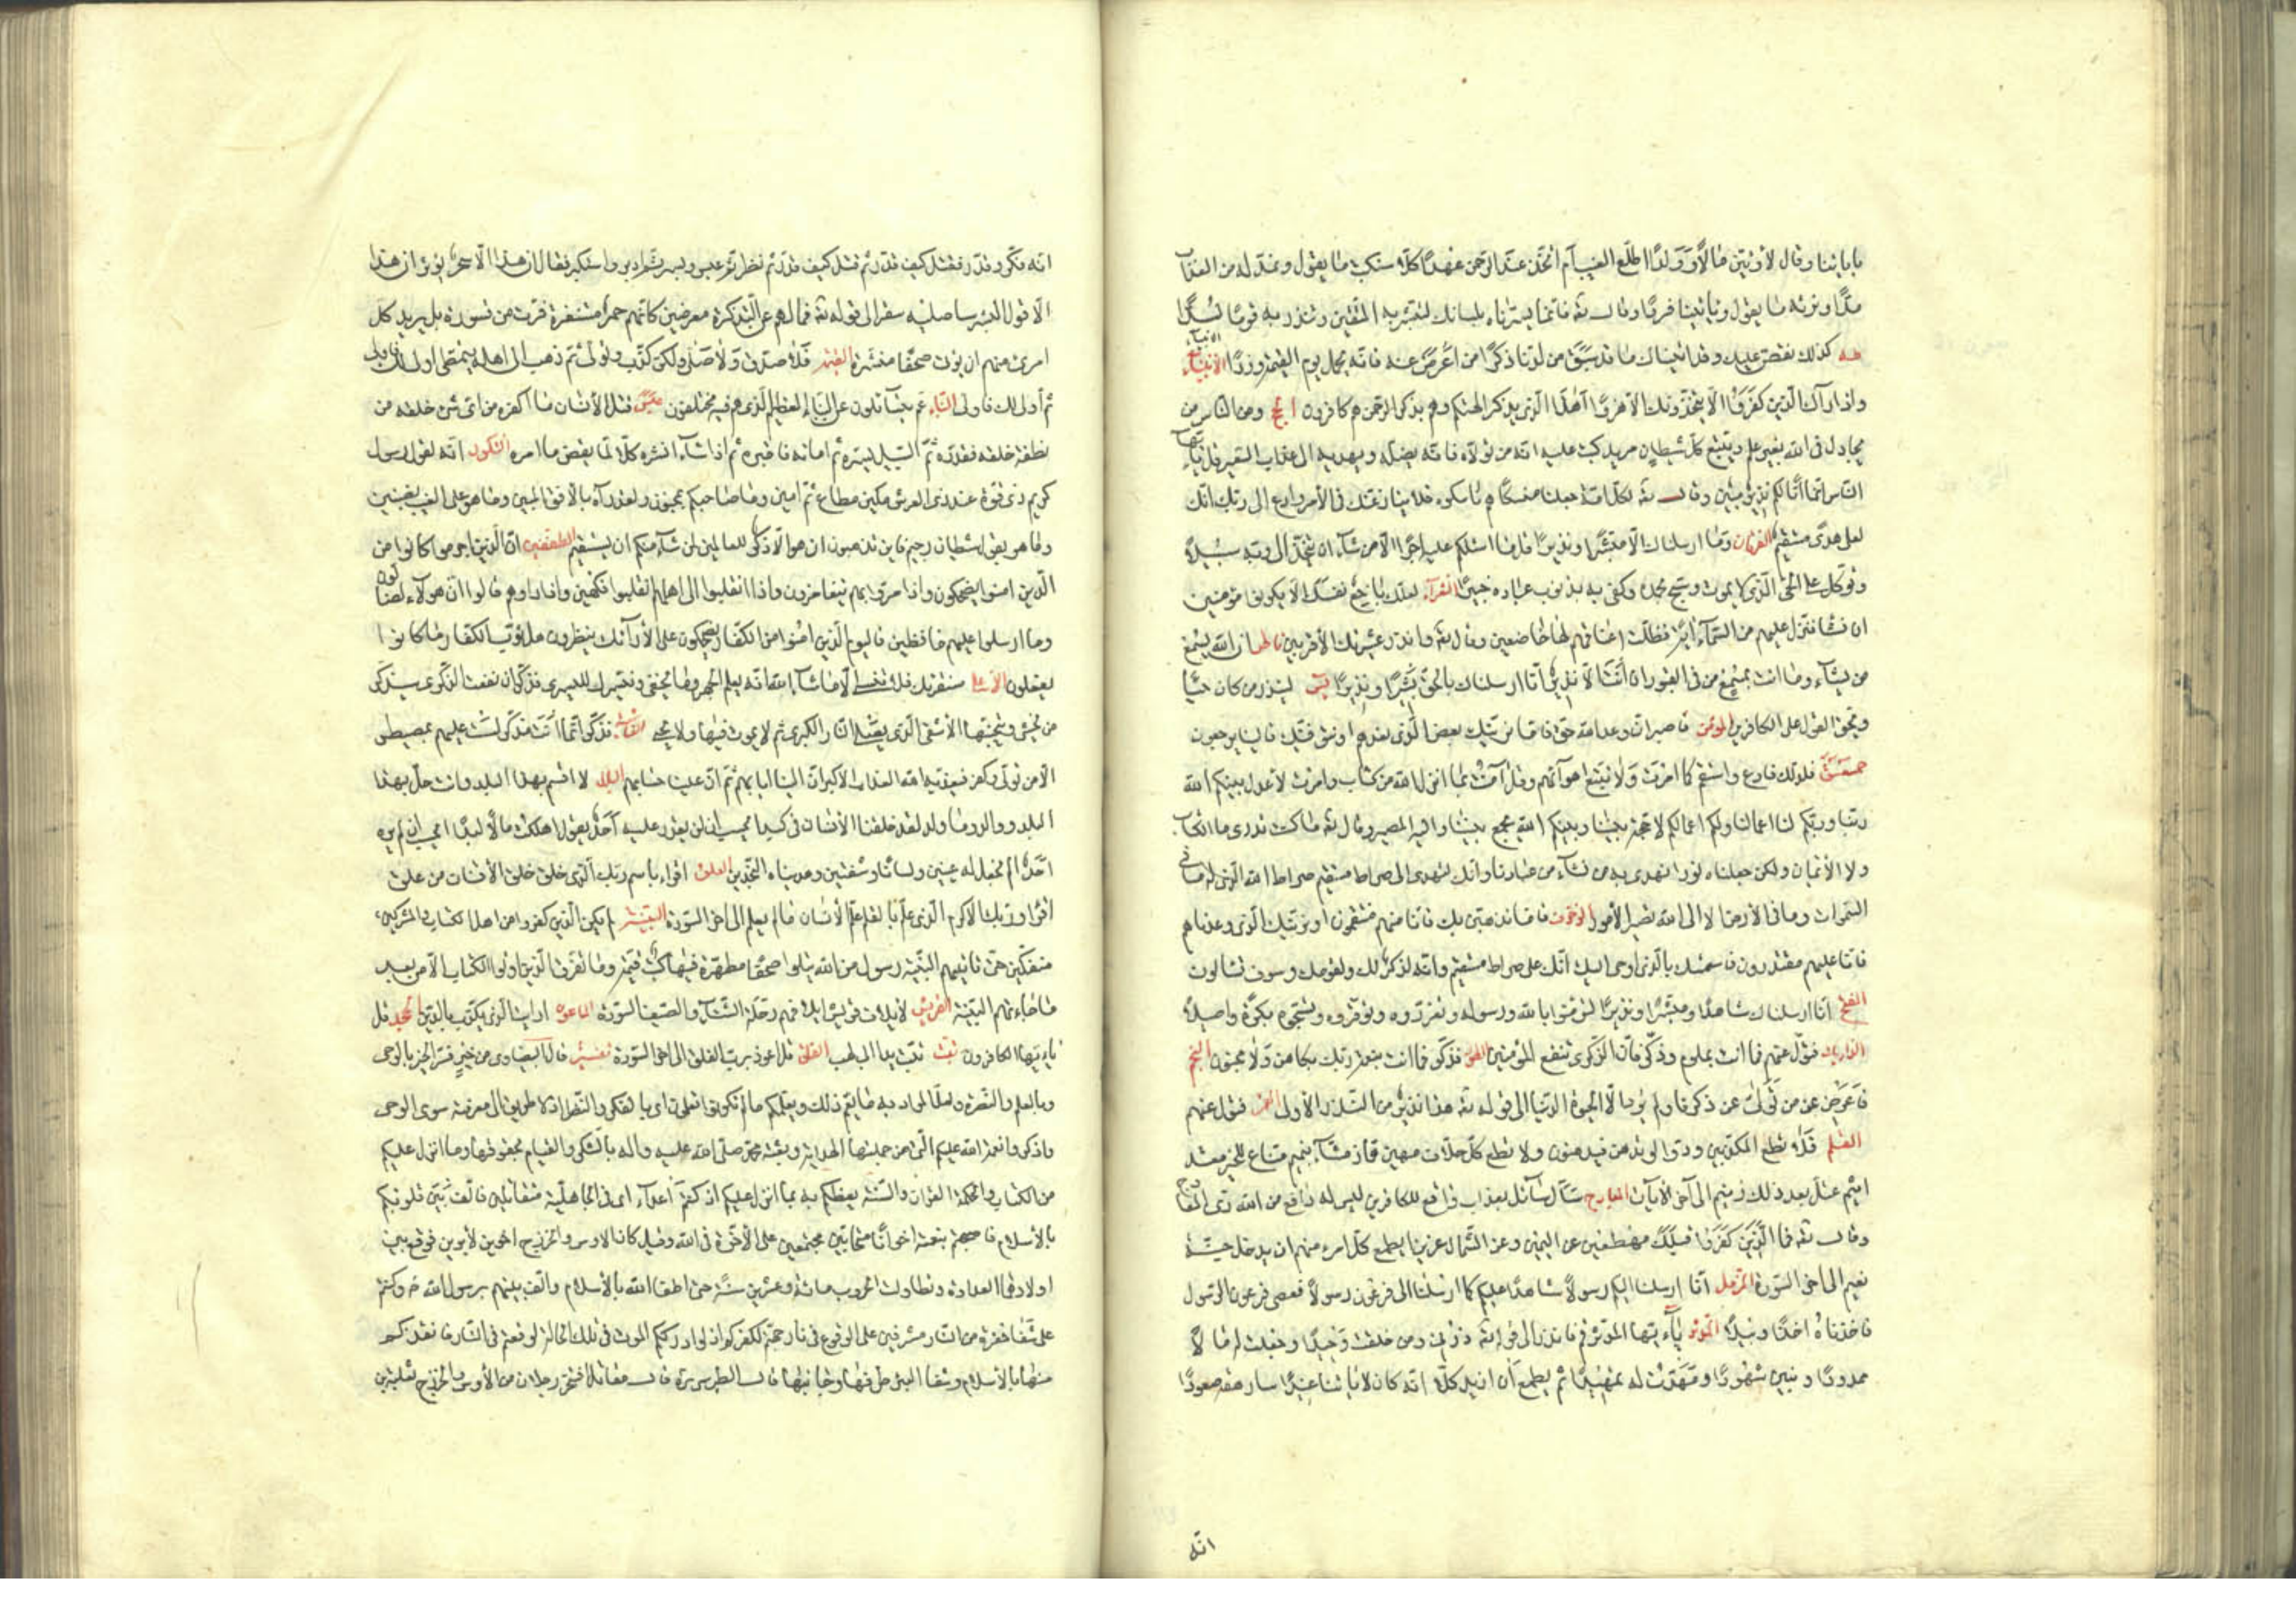 باياتنا وقال لأوتين مالا وولدا اطلع الغيب أم اتخذ عند الرحمن عهدا كلا سنكتب ما يقول ونمد له من العذاب
مدا ونرثه ما يقول وياتينا فردا وقال تع فانما يسرناه بلسانك لتبشر به المتقين وتنذر به قوما لدا
طه كذلك نقص عليك من انباء ما قد سبق وقد اتيناك من لدنا ذكرا من اعرض عنه فانه يحمل يوم القيمة وزرا الأنبياء
واذا رآك الذين كفروا ان يتخذونك الا هزوا أهذا الذى يذكر الهتكم وهم بذكر الرحمن هم كافرون الحج ومن الناس من
يجادل فى الله بغير علم ويتبع كل شيطان مريد كتب عليه انه من تولاه فانه يضله ويهديه الى عذاب السعير قل يا ايها
الناس انما أنا لكم نذير مبين وقال تع لكل امة جعلنا منسكا هم ناسكوه فلا ينازعنك فى الأمر وادع الى ربك انك
لعلى هدى مستقيم الفرقان وما ارسلناك الا مبشرا ونذيرا قل ما اسئلكم عليه من اجر الا من شاء ان يتخذ الى ربه سبيلا
وتوكل على الحى الذى لا يموت وسبح بحمده وكفى به بذنوب عباده خبيرا الشعراء لعلك باخع نفسك الا يكونوا مؤمنين
ان نشأ ننزل عليهم من السماء اية فظلت اعناقهم لها خاضعين وقال تع وانذر عشيرتك الأقربين فاطر ان الله يسمع
من يشاء وما انت بمسمع من فى القبور ان أنت الا نذير انا ارسلناك بالحق بشيرا ونذيرا يس لينذر من كان حيا
ويحق القول على الكافرين المؤمن فاصبر ان وعد الله حق فاما نرينك بعض الذى نعدهم او نتوفينك فالينا يرجعون
حمعسق فلذلك فادع واستقم كما امرت ولا تتبع اهوائهم وقل آمنت بما انزل الله من كتاب وامرت لأعدل بينكم الله
ربنا وربكم لنا اعمالنا ولكم اعمالكم لا حجة بيننا وبينكم الله يجمع بيننا واليه المصير وقال تع ما كنت تدرى ما الكتاب
ولا الأيمان ولكن جعلناه نورا نهدى به من نشاء من عبادنا وانك لتهدى الى صراط مستقيم صراط الله الذى له ما فى
السموات وما فى الأرض الا الى الله تصير الأمور الزخرف فاما نذهبن بك فانا منهم منتقمون او نرينك الذى وعدناهم
فانا عليهم مقتدرون فاستمسك بالذى اوحى اليك انك على صراط مستقيم وانه لذكر لك ولقومك وسوف تسألون
الفتح انا ارسلناك شاهدا ومبشرا ونذيرا لتؤمنوا بالله ورسوله وتعزروه وتوقروه وتسبحوه بكرة واصيلا
الذاريات فتول عنهم فما انت بملوم وذكر فان الذكرى تنفع المؤمنين الطور فذكر فما انت بنعمة ربك بكاهن ولا مجنون النجم
فاعرض عن من تولى عن ذكرنا ولم يرد الا الحيوة الدنيا الى قوله تع هذا نذير من النذر الأولى القمر فتول عنهم
القلم فلا تطع المكذبين ودوا لو تدهن فيدهنون ولا تطع كل حلاف مهين هماز مشاء بنميم مناع للخير معتد
اثيم عتل بعد ذلك زنيم الى آخر الآيات المعارج سأل سائل بعذاب واقع للكافرين ليس له دافع من الله ذى المعارج
وقال تع فما الذين كفروا قبلك مهطعين عن اليمين وعن الشمال عزين ايطمع كل امرء منهم ان يدخل جنة
نعيم الى اخر السورة المزمل انا ارسلنا اليكم رسولا شاهدا عليكم كما ارسلنا الى فرعون رسولا فعصى فرعون الرسول
فاخذناه اخذا وبيلا المدثر يا ايها المدثر قم فانذر الى قوله تع ذرنى ومن خلقت وحيدا وجعلت له مالا
ممدودا وبنين شهودا ومهدت له تمهيدا ثم يطمع أن ازيد كلا انه كان لاياتنا عنيدا سارهقه صعودا
انه
انه فكر وقدر فقتل كيف قدر ثم قتل كيف قدر ثم نظر ثم عبس وبسر ثم ادبر واستكبر فقال ان هذا الا سحر يؤثر ان هذا
الا قول البشر ساصليه سقر الى قوله تع فما لهم عن التذكرة معرضين كانهم حمر مستنفرة فرت من قسورة بل يريد كل
امرئ منهم ان يؤت صحفا منشرة القيمة فلا صدق ولا صلى ولكن كذب وتولى ثم ذهب الى اهله يتمطى اولى لك فاولى
ثم أولى لك فاولى النباء عم يتسائلون عن النباء العظيم الذى هم فيه مختلفون عبس قتل الأنسان ما أكفره من اى شئ خلقه من
نطفة خلقه فقدره ثم السبيل يسره ثم اماته فاقبره ثم اذا شاء انشره كلا لما يقض ما امره التكوير انه لقول رسول
كريم ذى قوة عند ذى العرش مكين مطاع ثم امين وما صاحبكم بمجنون ولقد رآه بالأفق المبين وما هو على الغيب بضنين
وما هو بقول شيطان رجيم فاين تذهبون ان هو الا ذكر للعالمين لمن شاء منكم ان يستقيم المطففين ان الذين اجرموا كانوا من
الذين امنوا يضحكون واذا مروا بهم يتغامزون واذا انقلبوا الى اهلهم انقلبوا فكهين واذا راوهم قالوا ان هولاء لضالون
وما ارسلوا عليهم حافظين فاليوم الذين امنوا من الكفار يضحكون على الأرآئك ينظرون هل ثوب الكفار ما كانوا
يفعلون الأعلى سنقرئك فلا تنسى الا ما شاء الله انه يعلم الجهر وما يخفى ونيسرك لليسرى فذكر ان نفعت الذكرى سيذكر
من يخشى ويتجنبها الأشقى الذى يصلى النار الكبرى ثم لا يموت فيها ولا يحيى الغاشية فذكر انما أنت مذكر لست عليهم بمصيطر
الا من تولى وكفر فيعذبه الله العذاب الاكبر ان الينا ايابهم ثم ان علينا حسابهم البلد لا اقسم بهذا البلد وانت حل بهذا
البلد ووالد وما ولد لقد خلقنا الأنسان فى كبد ايحسب ان لن يقدر عليه أحد يقول اهلكت مالا لبدا ايحسب ان لم يره
احد ألم نجعل له عينين ولسانا وشفتين وهديناه النجدين العلق اقراء باسم ربك الذى خلق خلق الأنسان من علق
اقرا وربك الاكرم الذى علم بالقلم علم الأنسان ما لم يعلم الى اخر السورة البينة لم يكن الذين كفروا من اهل الكتاب والمشركين
منفكين حتى تاتيهم البينة رسول من الله يتلوا صحفا مطهرة فيها كتب قيمة وما تفرق الذين اوتوا الكتاب الا من بعد
ما جاءتهم البينة القريش لايلاف قريش ايلافهم رحلة الشتاء والصيف السورة الماعون ارايت الذى يكذب بالدين الجحد قل
يا ايها الكافرون تبت تبت يدا ابى لهب الفلق قل اعوذ برب الفلق الى اخر السورة تفسير قال البيضاوى من خير فسر الخير بالوحى
وبالعلم والنصرة ولعل المراد به ما يعم ذلك ويعلمكم ما لم تكونوا تعلمون اى بالفكر والنظر اذ لا طريق الى معرفته سوى الوحى
واذكروا نعمة الله عليكم التى من جملتها الهداية وبعثة محمد صلى الله عليه واله بالشكر والقيام بحقوقها وما انزل عليكم
من الكتاب والحكمة القران والسنة يعظكم به بما انزل عليكم اذ كنتم أعداء اى فى الجاهلية متقاتلين فالف بين قلوبكم
بالأسلام فاصبحتم بنعمته اخوانا متحابين مجتمعين على الأخوة فى الله وقيل كان الاوس والخزرج اخوين لأبوين فوقع بين
اولادهما العداوة وتطاولت الحروب مائة وعشرين سنة حتى اطفاها الله بالأسلام والف بينهم برسول الله ص وكنتم
على شفا حفرة من النار مشرفين على الوقوع فى نار جهنم لكفركم اذ لو ادرككم الموت فى تلك الحالة لوقعتم فى النار فانقذكم
منها بالأسلام وشفا البئر طرفها وجانبها قال الطبرسى ره قال مقاتل افتخر رجلان من الأوس والخزرج ثعلبة بن